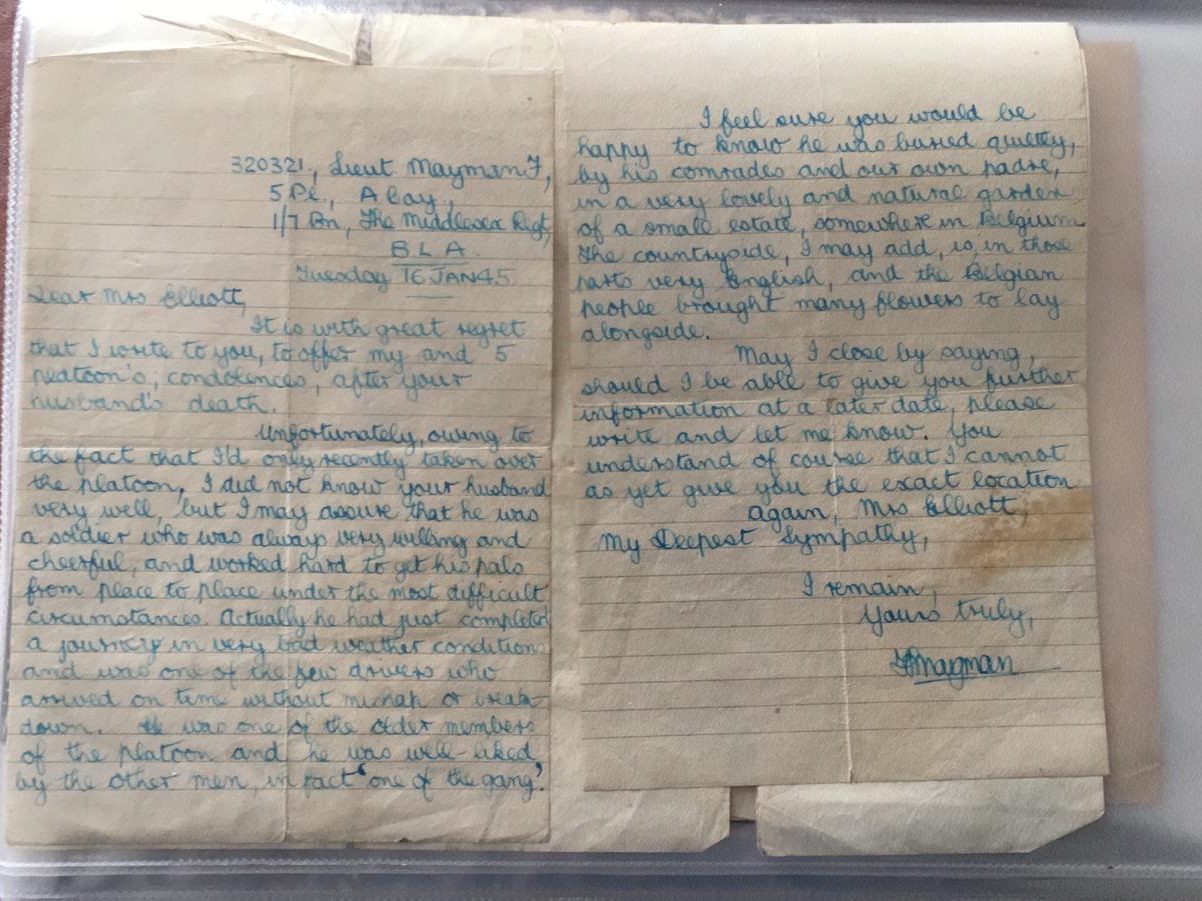 320321, Lieut Mayman F,
5 Pl., A Coy,
1/7 Bn, The Middlesex Regt,
B L A.
Tuesday 16 JAN 45
Dear Mrs Elliott,
It is with great regret
that I write to you, to offer my and 5
platoon's, condolences, after your
husband's death.
Unfortunately, owing to
the fact that I'd only recently taken over
the platoon, I did not know your husband
very well, but I may assure that he was
a soldier who was always very willing and
cheerful, and worked hard to get his pals
from place to place under the most difficult
circumstances. Actually he had just completed
a journey in very bad weather conditions
and was one of the few drivers who
arrived on time without mishap or break-
down. He was one of the older members
of the platoon and he was well-liked,
by the other men, in fact 'one of the gang'.
I feel sure you would be
happy to know he was buried quietly,
by his comrades and our own padre,
in a very lovely and natural garden
of a small estate, somewhere in Belgium.
The countryside, I may add, is, in those
parts very English, and the Belgian
people brought many flowers to lay
alongside.
May I close by saying,
should I be able to give you further
information at a later date, please
write and let me know. You
understand of course that I cannot
as yet give you the exact location.
Again, Mrs Elliott,
My Deepest Sympathy,
I remain,
Yours truly,
F Mayman